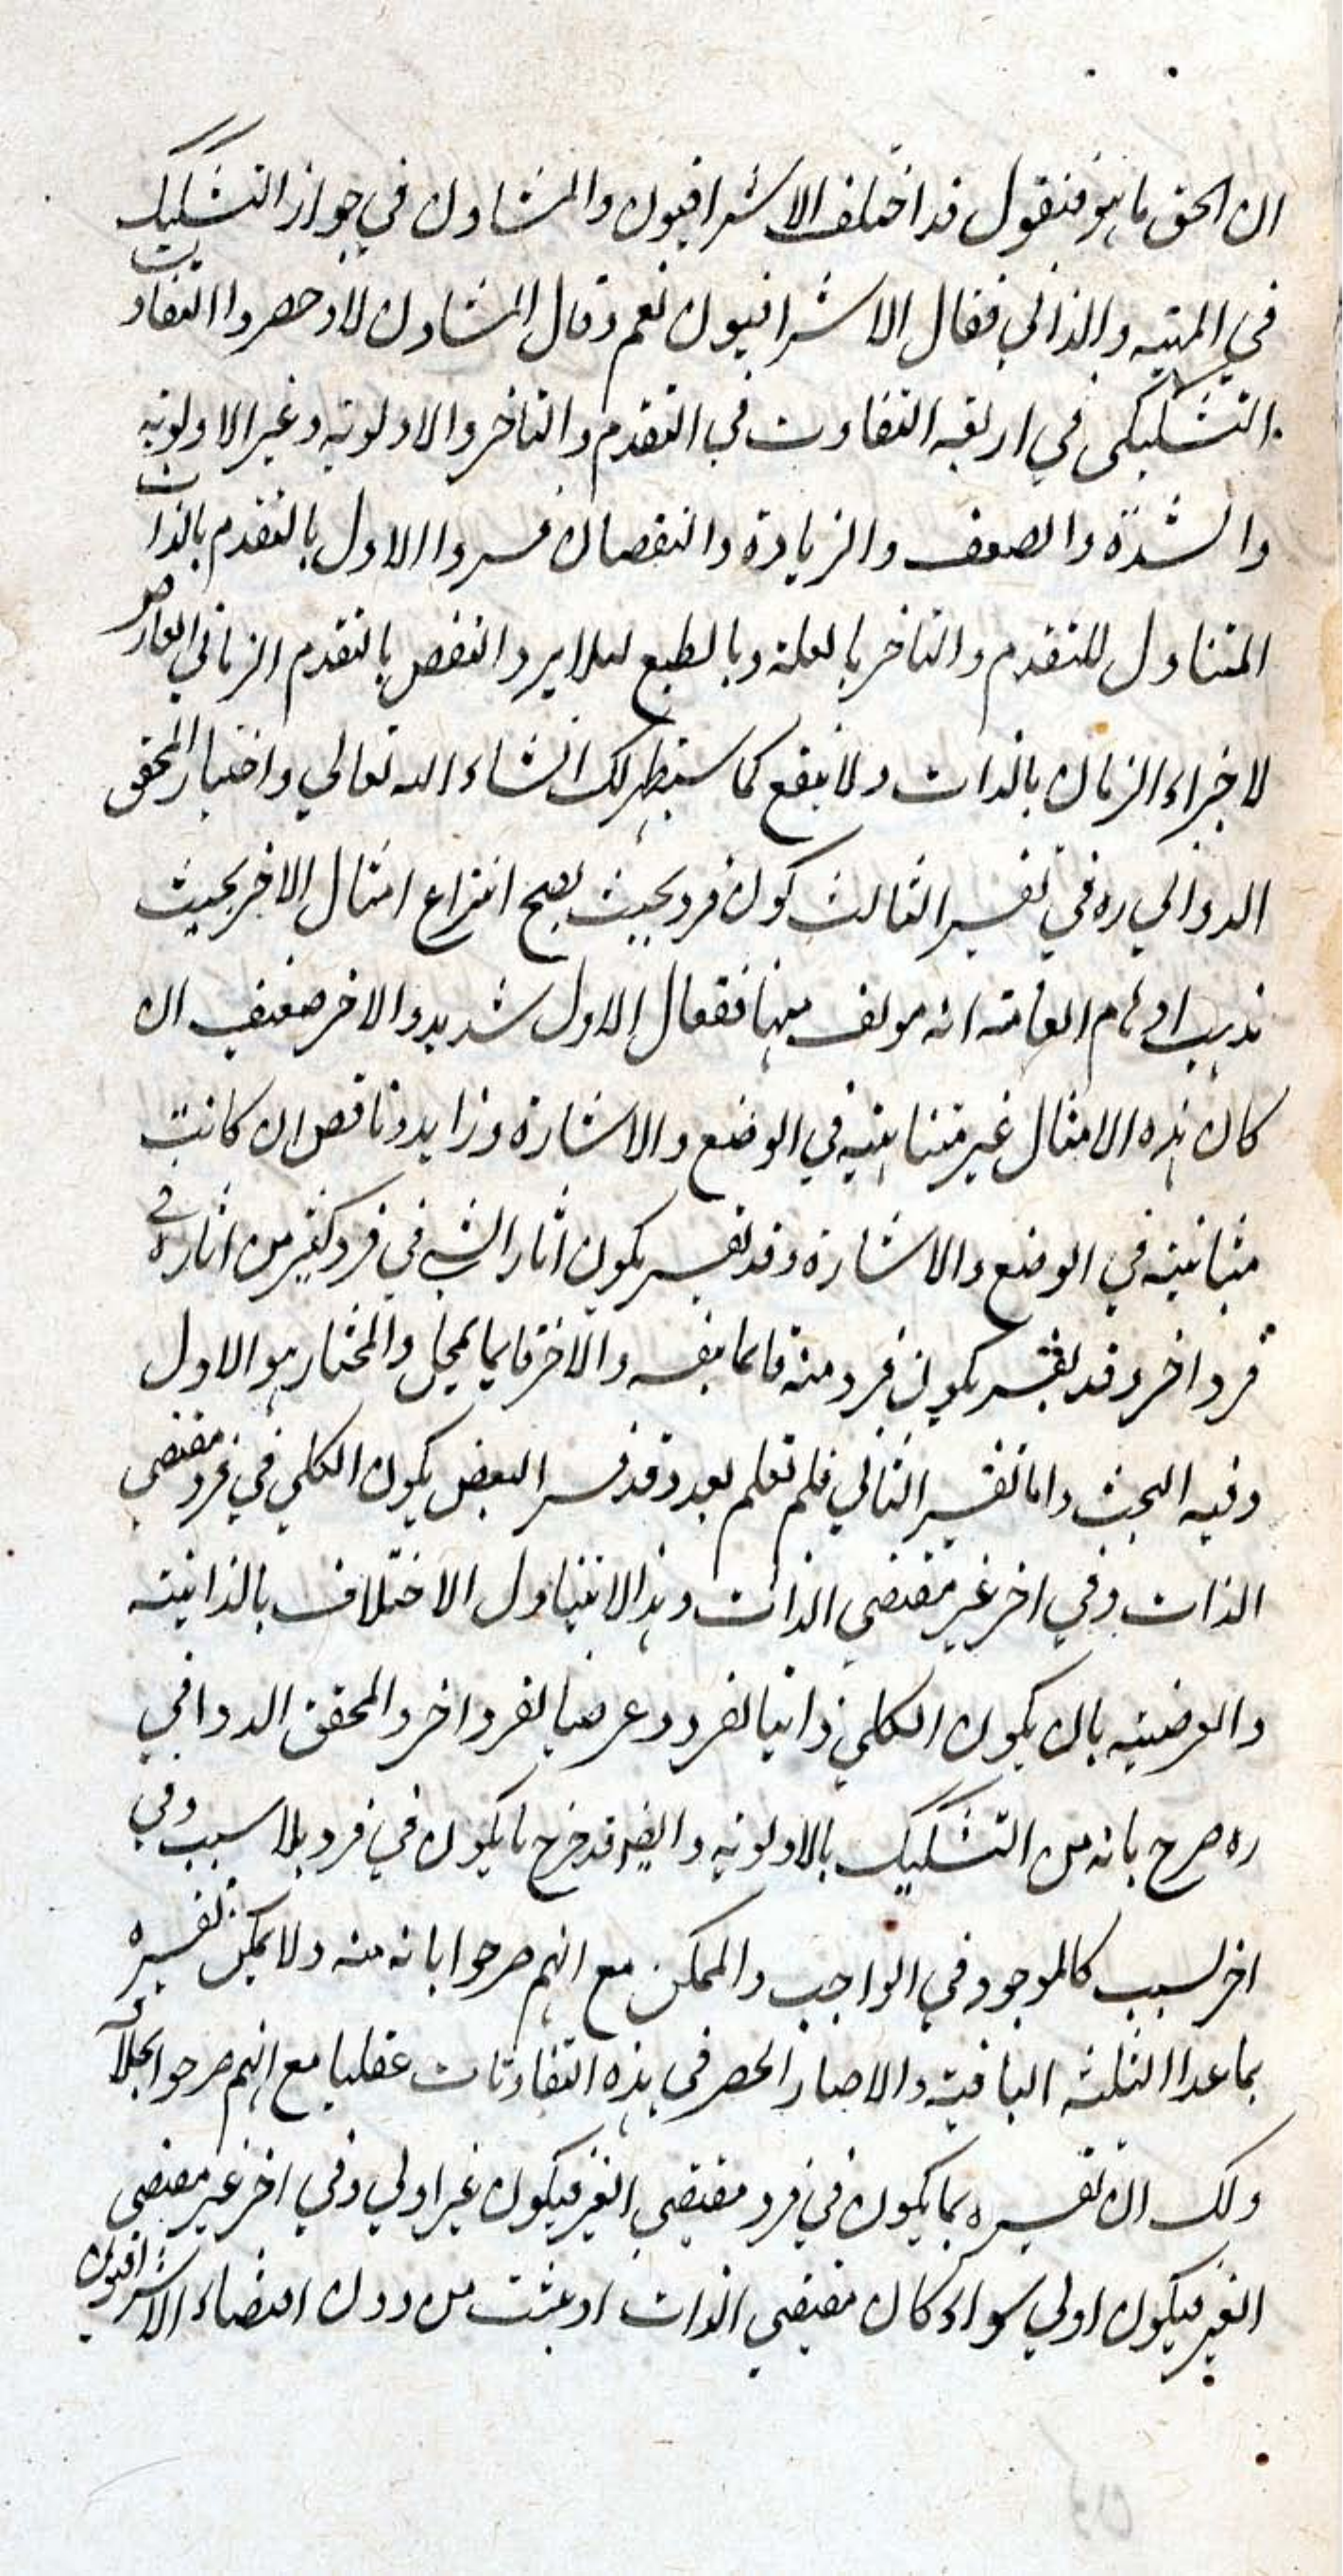 ان الحق ما هو فنقول قد اختلف الاشراقيون والمشاؤن في جواز التشكيك
في المهية والذاتي فقال الاشراقيون نعم وقال المشاؤن لا وحصروا التفاوت
التشكيكى في اربعة التفاوت في التقدم والتاخر والاولوية وغير الاولوية
والشدة والضعف والزيادة والنقصان فسروا الاول بالتقدم بالذات
المتناول للتقدم والتاخر بالعلة وبالطبع لئلا يرد النقض بالتقدم الزماني العارض
لاجزاء الزمان بالذات ولا ينفع كما سيظهر لك انشاء الله تعالي واختيار المحقق
الدواني ره في تفسير الثالث كون فرد بحيث يصح انتزاع امثال الاخر بحيث
يذهب اوهام العامة انه مولف منها فقال الاول شديد والاخر ضعيف ان
كان هذه الامثال غير متباينة في الوضع والاشارة وزايد وناقص ان كانت
متباينة في الوضع والاشارة وقد تفسر بكون اثار الشي في فرد كثير من اثاره في
فرد اخر وقد يفسر بكون فرد منه قائما بنفسه والاخر قايما بمحل والمختار هو الاول
وفيه البحث واما تفسير الثاني فلم نعلم بعد وقد فسر البعض بكون الكلي في فرد مقتضى
الذات وفي اخر غير مقتضي الذات وهذا لا يتناول الاختلاف بالذاتية
والعرضية بان يكون الكلي ذاتيا لفرد وعرضيا لفرد اخر والمحقق الدواني
ره صرح بانه من التشكيك بالاولوية وايضا قد خرج ما يكون في فرد بلا سبب وفي
اخر لسبب كالموجود في الواجب والممكن مع انهم صرحوا بانه منه ولا يمكن تفسيره
بما عدا الثلثة الباقية والا صار الحصر في هذه التفاوتات عقليا مع انهم صرحوا بخلافه
ولك ان تفسره بما يكون في فرد مقتضي الغير فيكون غير اولي وفي اخر غير مقتضي
الغير فيكون اولي سواء كان مقتضي الذات او يثبت من دون اقتضاء الاشراقيون